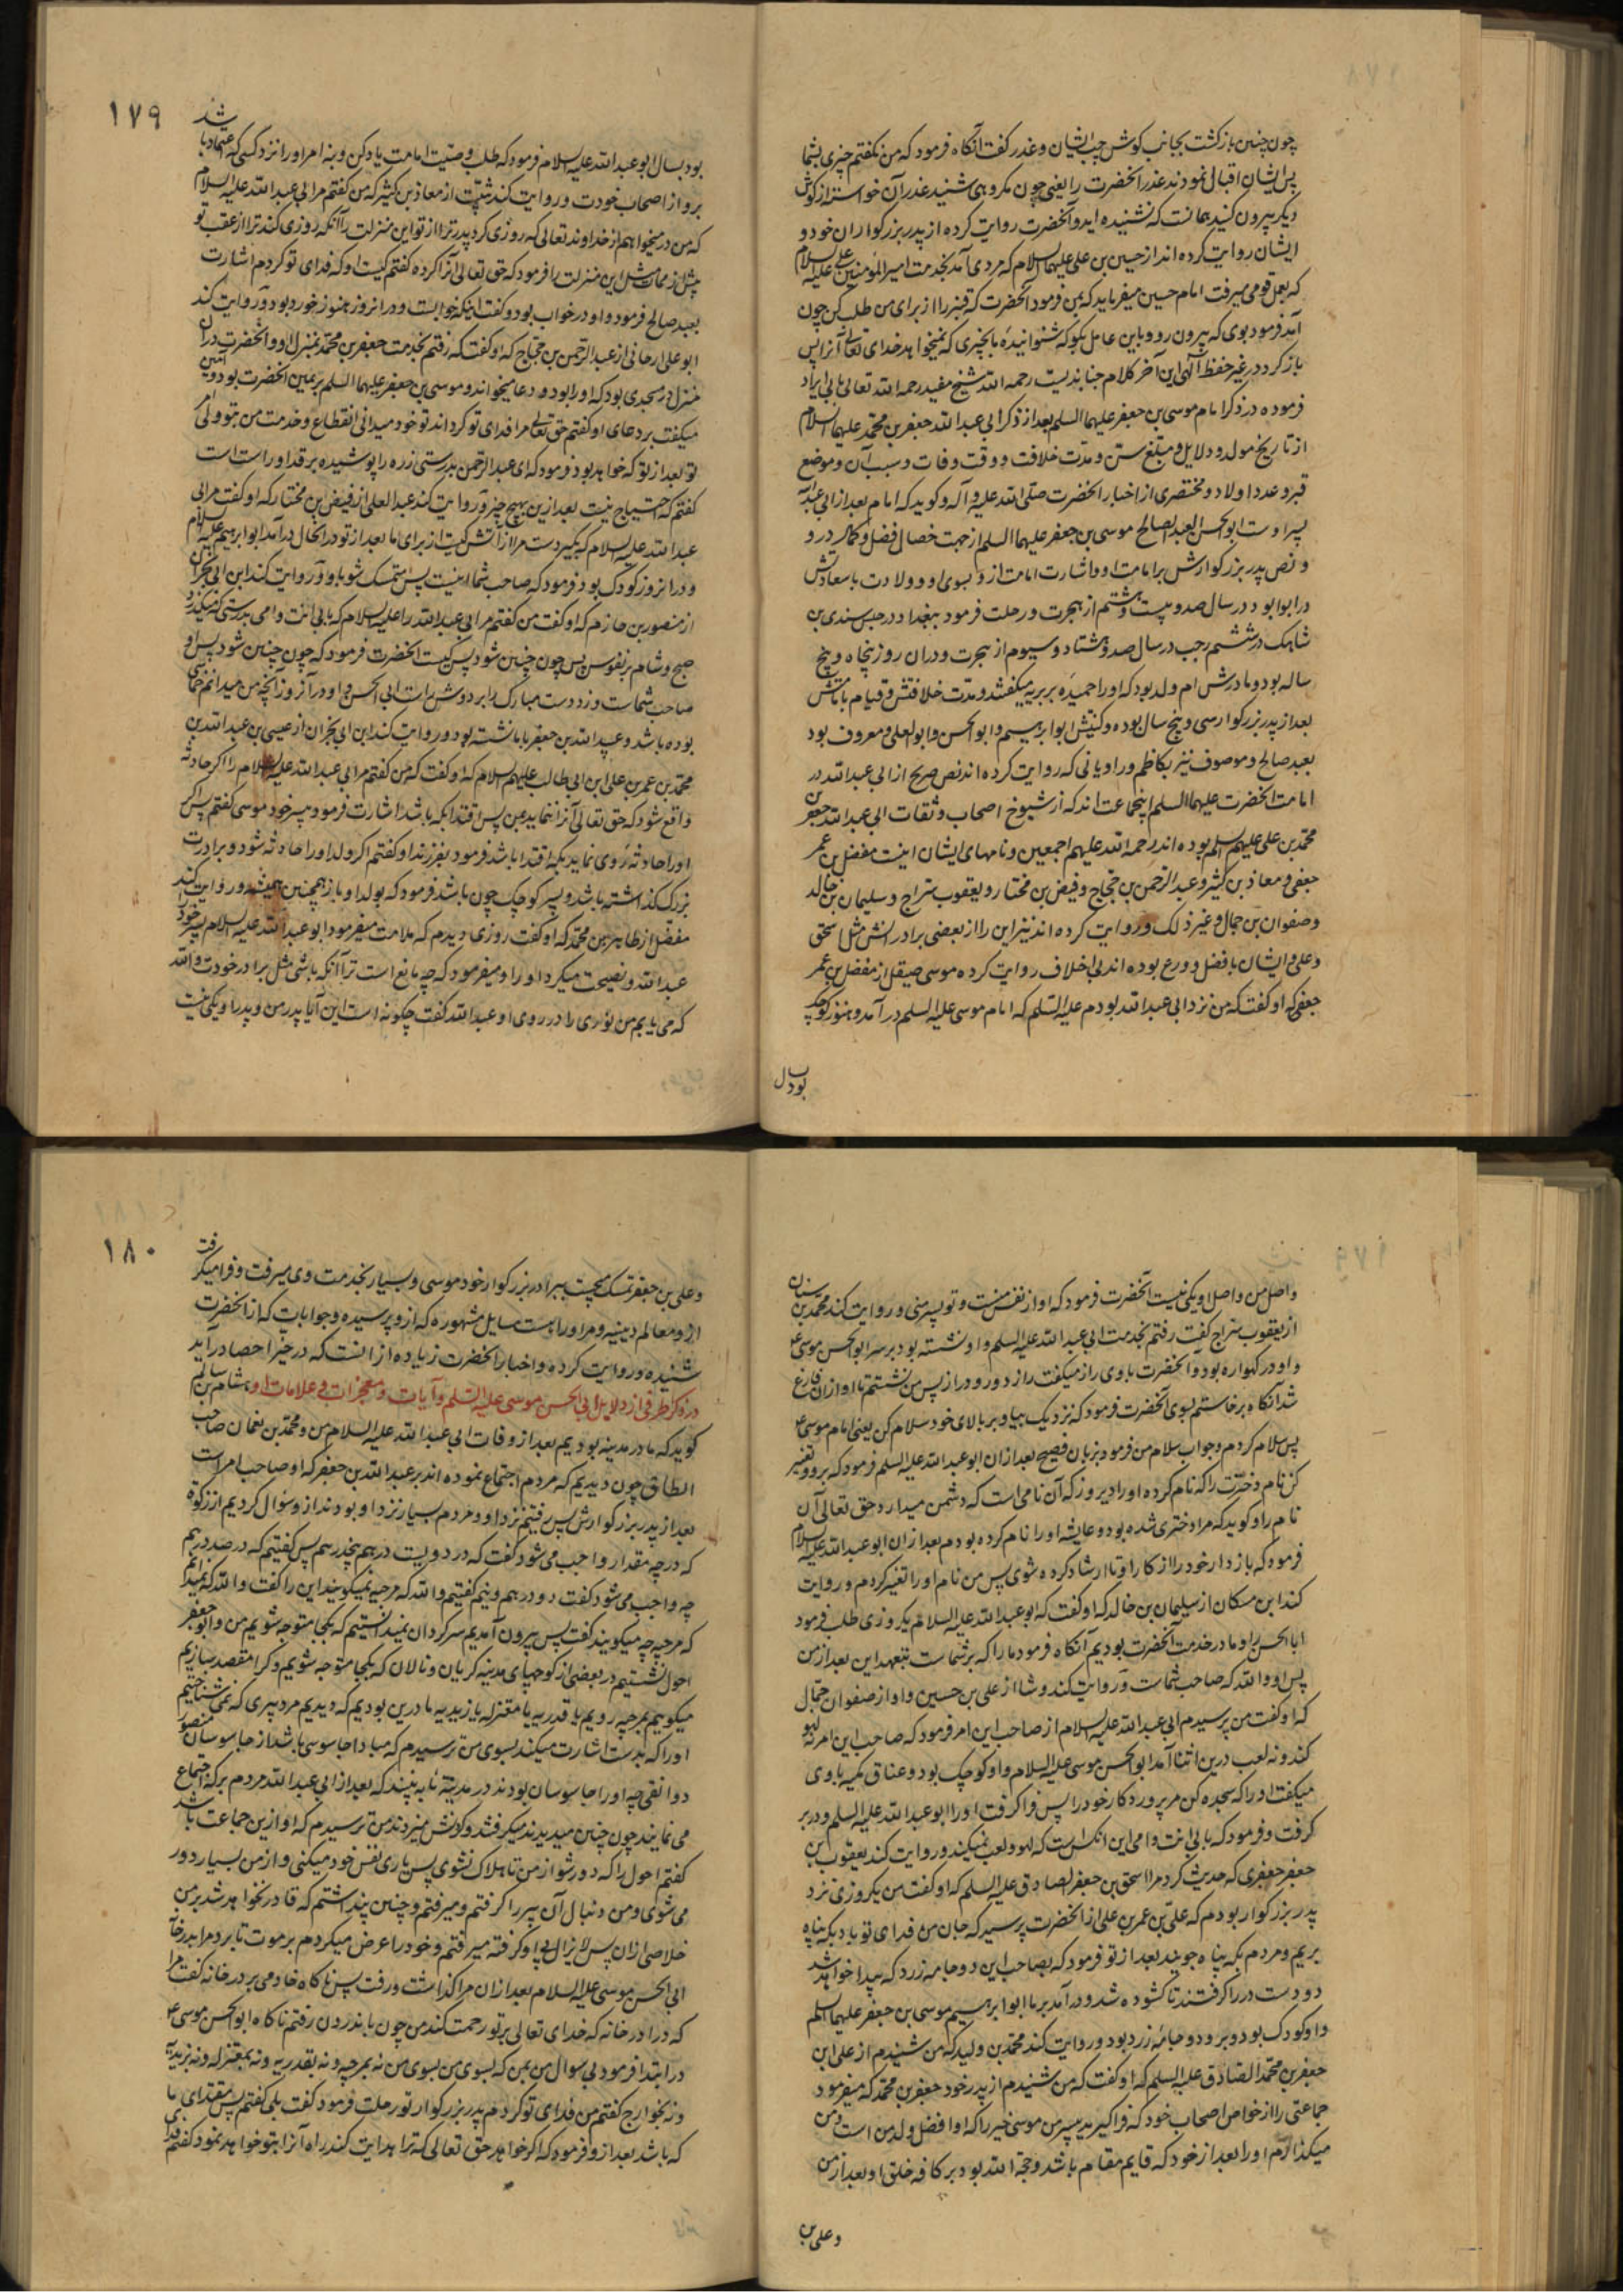 چون چنین بازگشت بجانب کوش چپ ایشان و عذر گفت آنگاه فرمود که من نگفتم چیزی بشما
پس ایشان اقبال نمودند عذر آنحضرت را یعنی چون مکروهی شنید عذر آن خواست از کوش
دیگر بیرون کنید بمانست که نشنیده اید و آنحضرت روایت کرده از پدر بزرگواران خود و
ایشان روایت کرده اند از حسین بن علی علیهما السلام که مردی آمد بخدمت امیر المؤمنین علی علیه السلام
که بعمل قومی میرفت امام حسین میفرماید که بمن فرمود آنحضرت که قنبر را از برای من طلب کن چون
آمد فرمود بوی که بیرون رو و باین عامل بگو که شنوانیده بما بچیزی که نمیخواهد خدای تعالی آنرا پس
بازگردد در غیر حفظ الهی این آخر کلام جنابذیست رحمه الله شیخ مفید رحمه الله تعالی بابی ایراد
فرموده در ذکر امام موسی بن جعفر علیهما السلم بعد از ذکر ابی عبد الله جعفر بن محمد علیهما السلام
از تاریخ مولد و دلایل و مبلغ سن و مدت خلافت و وقت وفات و سبب آن و موضع
قبر و عدد اولاد و مختصری از اخبار آنحضرت صلی الله علیه و آله و گوید که امام بعد از ابی عبد الله
پسر اوست ابو الحسن العبد الصالح موسی بن جعفر علیهما السلم از جهت خصال فضل و کمال در و
و نص پدر بزرگوارش بر امامت او و اشارت امامت ازو بسوی او و ولادت باسعادتش
در ابوا بود در سال صد و بیست و هشتم از هجرت و رحلت فرمود ببغداد در حبس سندی بن
شاهک در ششم رجب در سال صد و هشتاد و سیوم از هجرت و در آن روز پنجاه و پنج
ساله بود و مادرش ام ولد بود که او را حمیده بربریه میگفتند و مدت خلافتش و قیام بامامتش
بعد از پدر بزرگوار سی و پنج سال بوده و کنیتش ابو ابراهیم و ابو الحسن و ابو العلی و معروف بود
بعبد صالح و موصوف نیز بکاظم و راویانی که روایت کرده اند نص صریح از ابی عبد الله در
امامت آنحضرت علیهما السلم اینجماعت اند که از شیوخ اصحاب و ثقات ابی عبد الله جعفر بن
محمد بن علی علیهم السلم بوده اند رحمه الله علیهم اجمعین و نامهای ایشان اینست مفضل بن عمر
جعفی و معاذ بن کثیر و عبد الرحمن بن حجاج و فیض بن مختار و یعقوب سراج و سلیمان بن خالد
و صفوان بن جمال و غیر ذلک و روایت کرده اند نیز این را از بعضی برادرانش مثل اسحق
و علی و ایشان بافضل و ورع بوده اند بی اخلاف روایت کرده موسی صیقل از مفضل بن عمر
جعفی که او گفت که من نزد ابی عبد الله بودم علیه السلم که امام موسی علیه السلم در آمد و هنوز کوچک
بود بسال
۱۷۹
بود بسال ابو عبد الله علیه السلام فرمود که طلب وصیت امامت یاد کن و بنه امر او را نزد کسی که اعتماد باشد
برو از اصحاب خودت و روایت کند ثبیت از معاذ بن کثیر که من گفتم مر ابی عبد الله علیه السلام
که من در میخواهم از خداوند تعالی که روزی کرد پدر ترا از تو این منزلت را آنکه روزی کند ترا از عقب تو
پیش از ممات مثل این منزلت را فرمود که حق تعالی آنرا کرده گفتم کیست او که فدای تو کردم اشارت
بعبد صالح فرمود و او در خواب بود و گفت اینکه خوابست و در آنروز هنوز خورد بود و روایت کند
ابو علی ارجانی از عبد الرحمن بن حجاج که او گفت که رفتم بخدمت جعفر بن محمد بمنزل او و آنحضرت در آن
منزل در مسجدی بود که او را بود و دعا میخواند و موسی بن جعفر علیهما السلم بر یمین آنحضرت بود و آمین
میگفت بر دعای او گفتم حق تعالی مرا فدای تو گرداند تو خود میدانی انقطاع و خدمت من بتو ولی امر
تو بعد از تو که خواهد بود فرمود که ای عبد الرحمن بدرستی زره را پوشیده بر قد او راست است
گفتم که احتیاج نیست بعد ازین بهیچ چیز و روایت کند عبد الاعلی از فیض بن مختار که او گفت مر ابی
عبد الله علیه السلام که بگیر دست مرا از آتش کیست از برای ما بعد از تو در آنحال در آمد ابو ابراهیم علیه السلام
و در آنروز کودک بود فرمود که صاحب شما اینست پس متمسک شو باو و روایت کند ابن ابی نجران
از منصور بن حازم که او گفت من گفتم مر ابی عبد الله را علیه السلام که بابی انت و امی بدرستی که میگذرد
صبح و شام بر نفوس پس چون چنین شود پس کیست آنحضرت فرمود که چون چنین شود پس او
صاحب شماست و زد دست مبارک را بر دوش راست ابی الحسن و او در آنروز آنچه من میدانم خماسی
بوده باشد و عبد الله بن جعفر با ما نشسته بود و روایت کند ابن ابی نجران از عیسی بن عبد الله بن
محمد بن عمر بن علی ابن ابی طالب علیهم السلام که او گفت که من گفتم مر ابی عبد الله علیه السلام را اگر حادثه
واقع شود که حق تعالی آنرا ننماید بمن پس اقتدا بکه باشد اشارت فرمود بپسر خود موسی گفتم پس اگر
او را حادثه روی نماید بکه اقتدا باشد فرمود بفرزند او گفتم اگر ولد او را حادثه شود و برادرت
بزرگ گذاشته باشد و پسر کوچک چون باشد فرمود که بولد او باز همچنین همیشه و روایت کند
مفضل از طاهر بن محمد که او گفت روزی دیدم که ملامت میفرمود ابو عبد الله علیه السلام پسر خود را
عبد الله و نصیحت میکرد او را و میفرمود که چه مانع است ترا آنکه باشی مثل برادر خودت والله
که می یابم من نوری را در روی او عبد الله گفت چگونه است این آیا پدر من و پدر او یکی نیست
و اصل من و اصل او یکی نیست آنحضرت فرمود که او از نفس منست و تو پسر منی و روایت کند محمد بن سنان
از یعقوب سراج گفت رفتم بخدمت ابی عبد الله علیه السلم و او نشسته بود بر سر ابو الحسن موسی ع
و او در گهواره بود و آنحضرت با وی راز میگفت راز دور و دراز پس من نشستم تا او از آن فارغ
شد آنگاه برخاستم بسوی آنحضرت فرمود که نزدیک بیا و بر بالای خود سلام کن یعنی امام موسی ع
پس سلام کردم و جواب سلام من فرمود بزبان فصیح بعد از آن ابو عبد الله علیه السلم فرمود که برو و تغییر
کن نام دخترت را که نام کرده او را دیروز که آن نامی است که دشمن میدارد حق تعالی آن
نام را و گوید که مرا دختری شده بود و عایشه او را نام کرده بودم بعد از آن ابو عبد الله علیه السلام
فرمود که باز دار خود را از کار او تا ارشاد کرده شوی پس من نام او را تغییر کردم و روایت
کند ابن مسکان از سلیمان بن خالد که او گفت که ابو عبد الله علیه السلام یک روزی طلب فرمود
ابا الحسن را و ما در خدمت آنحضرت بودیم آنگاه فرمود ما را که بر شماست بتعهد این بعد از من
پس او والله که صاحب شماست و روایت کند وشا از علی بن حسین و او از صفوان جمال
که او گفت من پرسیدم ابی عبد الله علیه السلام از صاحب این امر فرمود که صاحب این امر نه لهو
کند و نه لعب درین اثنا آمد ابو الحسن موسی علیه السلام و او کوچک بود و عناق مکیه با وی
میگفت او را که سجده کن مر پروردگار خود را پس فرا گرفت او را ابو عبد الله علیه السلم و در بر
گرفت و فرمود که بابی انت و امی این آنکس است که لهو و لعب نمیکند و روایت کند یعقوب ابن
جعفر جعفری که حدیث کرد مرا اسحق بن جعفر الصادق علیه السلم که او گفت من یکروزی نزد
پدر بزرگوار بودم که علی بن عمر بن علی از آنحضرت پرسید که جان من فدای تو باد بکه پناه
بریم و مردم بکه پناه جویند بعد از تو فرمود که بصاحب این دو جامه زرد که پیدا خواهد شد
دو دست در را گرفتند تا گشوده شد و در آمد بر ما ابو ابراهیم موسی بن جعفر علیهما السلم
و او کودک بود و برو دو جامه زرد بود و روایت کند محمد بن ولید که من شنیدم از علی ابن
جعفر بن محمد الصادق علیه السلم که او گفت که من شنیدم از پدر خود جعفر بن محمد که میفرمود
جماعتی را از خواص اصحاب خود که فرا گیرید بپسر من موسی خیر را که او افضل ولد من است و من
میگذارم او را بعد از خود که قایم مقام باشد و حجة الله بود بر کافه خلق او بعد از من
و علی بن
۱۸۰
و علی بن جعفر تمسک بجست ببرادر بزرگوار خود موسی و بسیار بخدمت وی میرفت و فرا میگرفت
ازو معالم دینیه و مر او راست مسایل مشهوره که ازو پرسیده و جوابات که از آنحضرت
شنیده و روایت کرده و اخبار آنحضرت زیاده از آنست که در خیز احصا در آید
در ذکر طرفی از دلایل ابی الحسن موسی علیه السلم و آیات و معجزات و علامات او هشام بن سالم
گوید که ما در مدینه بودیم بعد از وفات ابی عبد الله علیه السلام من و محمد بن نعمان صاحب
الطاق چون دیدیم که مردم اجتماع نموده اند بر عبد الله بن جعفر که او صاحب امر است
بعد از پدر بزرگوارش پس رفتیم نزد او و مردم بسیار نزد او بودند ازو سؤال کردیم از زکوة
که در چه مقدار واجب می شود گفت که در دویست درهم پنج درهم پس گفتیم که در صد درهم
چه واجب می شود گفت دو درهم و نیم گفتیم والله که مرجیه نمیگویند این را گفت والله که نمیدانم
که مرجیه چه میگویند گفت پس بیرون آمدیم سرگردان نمیدانستیم که بکجا متوجه شویم من و ابو جعفر
احول نشستیم در بعضی از کوچهای مدینه گریان و نالان که بکجا متوجه شویم و کرا مقصد سازیم
میگوییم بمرجیه رویم یا قدریه یا معتزله یا زیدیه ما درین بودیم که دیدیم مرد پیری که نمی شناختیم
او را که بدست اشارت میکند بسوی من ترسیدم که مبادا جاسوسی باشد از جاسوسان منصور
دوانقی چه او را جاسوسان بودند در مدینه تا به بینند که بعد از ابی عبد الله مردم بر که اجتماع
می نمایند چون چنین میدیدند میگرفتند و گردنش میزدند من ترسیدم که او ازین جماعت باشد
گفتم احول را که دور شو از من تا هلاک نشوی پس یاری نفس خود میکنی و از من بسیار دور
می شوی و من دنبال آن پیر را گرفتم و میرفتم و چنین پنداشتم که قادر نخواهد شد بر من
خلاصی از آن پس لا یزال پی او گرفته میرفتم و خود را عرض میکردم بر موت تا برد مرا بدر خانه
ابی الحسن موسی علیه السلام بعد از آن مرا گذاشت و رفت پس ناگاه خادمی بر در خانه گفت مرا
که در آ در خانه که خدای تعالی بر تو رحمت کند من چون باندرون رفتم ناگاه ابو الحسن موسی ع
در ابتدا فرمود بی سوال من بمن که بسوی من بسوی من نه بمرجیه و نه بقدریه و نه بمعتزله و نه بزیدیه
و نه بخوارج گفتم من فدای تو کردم پدر بزرگوار تو رحلت فرمود گفت بلی گفتم پس مقتدای ما
که باشد بعد ازو فرمود که اگر خواهد حق تعالی که ترا هدایت کند راه آنرا بتو خواهد نمود گفتم فدا